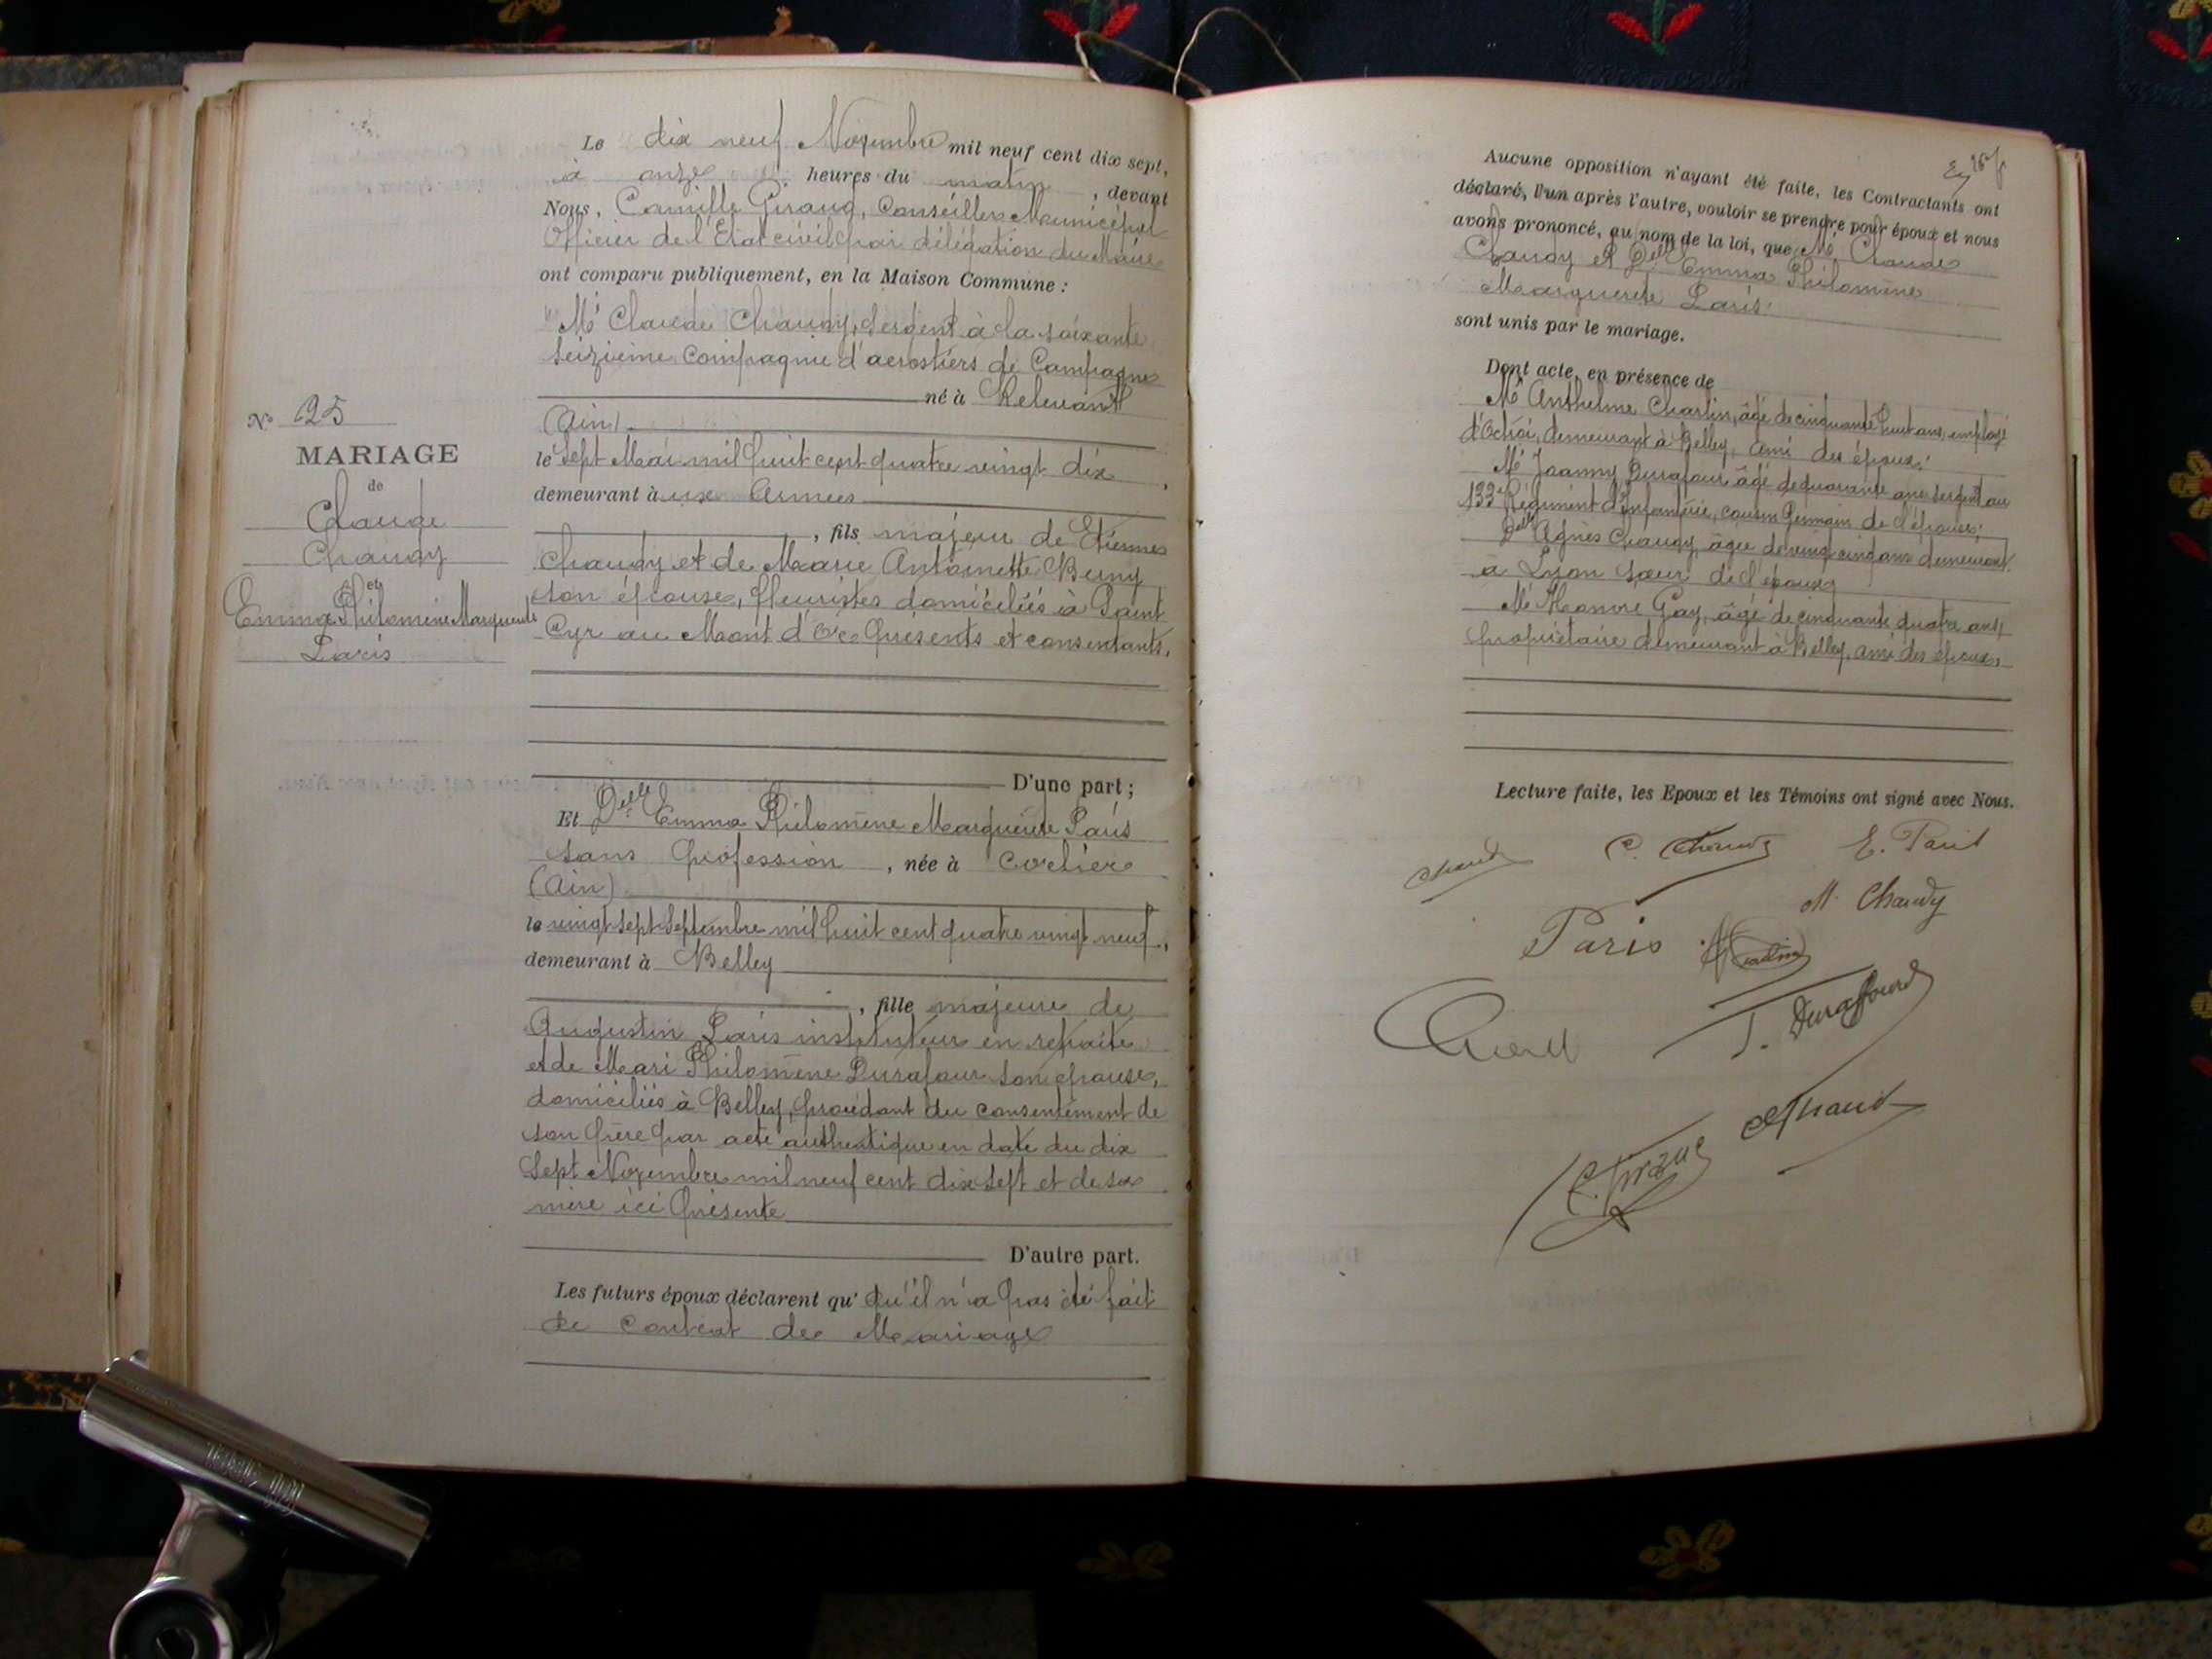 Le dix neuf Novembre mil neuf cent dix sept,
à onze heures du matin, devant
Nous, Camille Giraud, Conseiller Municipal
Officier de l'Etat civil par délégation du Maire
ont comparu publiquement, en la Maison Commune :
Mr Claude Chaudy, sergent à la soixante
seizième compagnie d'aerostiers de Campagne
né à Relevant
(Ain)
le sept Mai mil huit cent quatre vingt dix,
demeurant à aux Armées
, fils majeur de Etienne
Chaudy et de Marie Antoinette Beuny
son épouse, fleuristes domiciliés à Saint
Cyr au Mont d'Or présents et consentants,
D'une part ;
No 25
MARIAGE
de
Claude
Chaudy
et
Emma Philomène Marguerite
Paris
Et Delle Emma Philomène Marguerite Paris
sans profession, née à Corlier
(Ain)
le vingt sept Septembre mil huit cent quatre vingt neuf,
demeurant à Belley
, fille majeure de
Augustin Paris instituteur en retraite
et de Mari Philomène Durafour son épouse,
domiciliés à Belley, procédant du consentement de
son père par acte authentique en date du dix
Sept Novembre mil neuf cent dix sept et de sa
mère ici présente
D'autre part.
Les futurs époux déclarent qu' qu'il n'a pas été fait
de contrat de Mariage
Aucune opposition n'ayant été faite, les Contractants ont
déclaré, l'un après l'autre, vouloir se prendre pour époux et nous
avons prononcé, au nom de la loi, que Mr Claude
Chaudy et Delle Emma Philomène
Marguerite Paris
sont unis par le mariage.
Dont acte, en présence de
Mr Anthelme Charlin, âgé de cinquante huit ans, employé
d'Octroi, demeurant à Belley, ami des époux;
Mr Joanny Durafour âgé de quarante ans sergent au
133e Régiment d'Infanterie, cousin Germain de l'épouse;
Delle Agnès Chaudy âgée de vingt cinq ans demeurant
à Lyon sœur de l'époux
Mr Honoré Gay, âgé de cinquante quatre ans,
propriétaire demeurant à Belley, ami des époux,
Lecture faite, les Epoux et les Témoins ont signé avec Nous.
C. Chaudy
E. Paris
M. Chaudy
Paris
J. Duraffourd